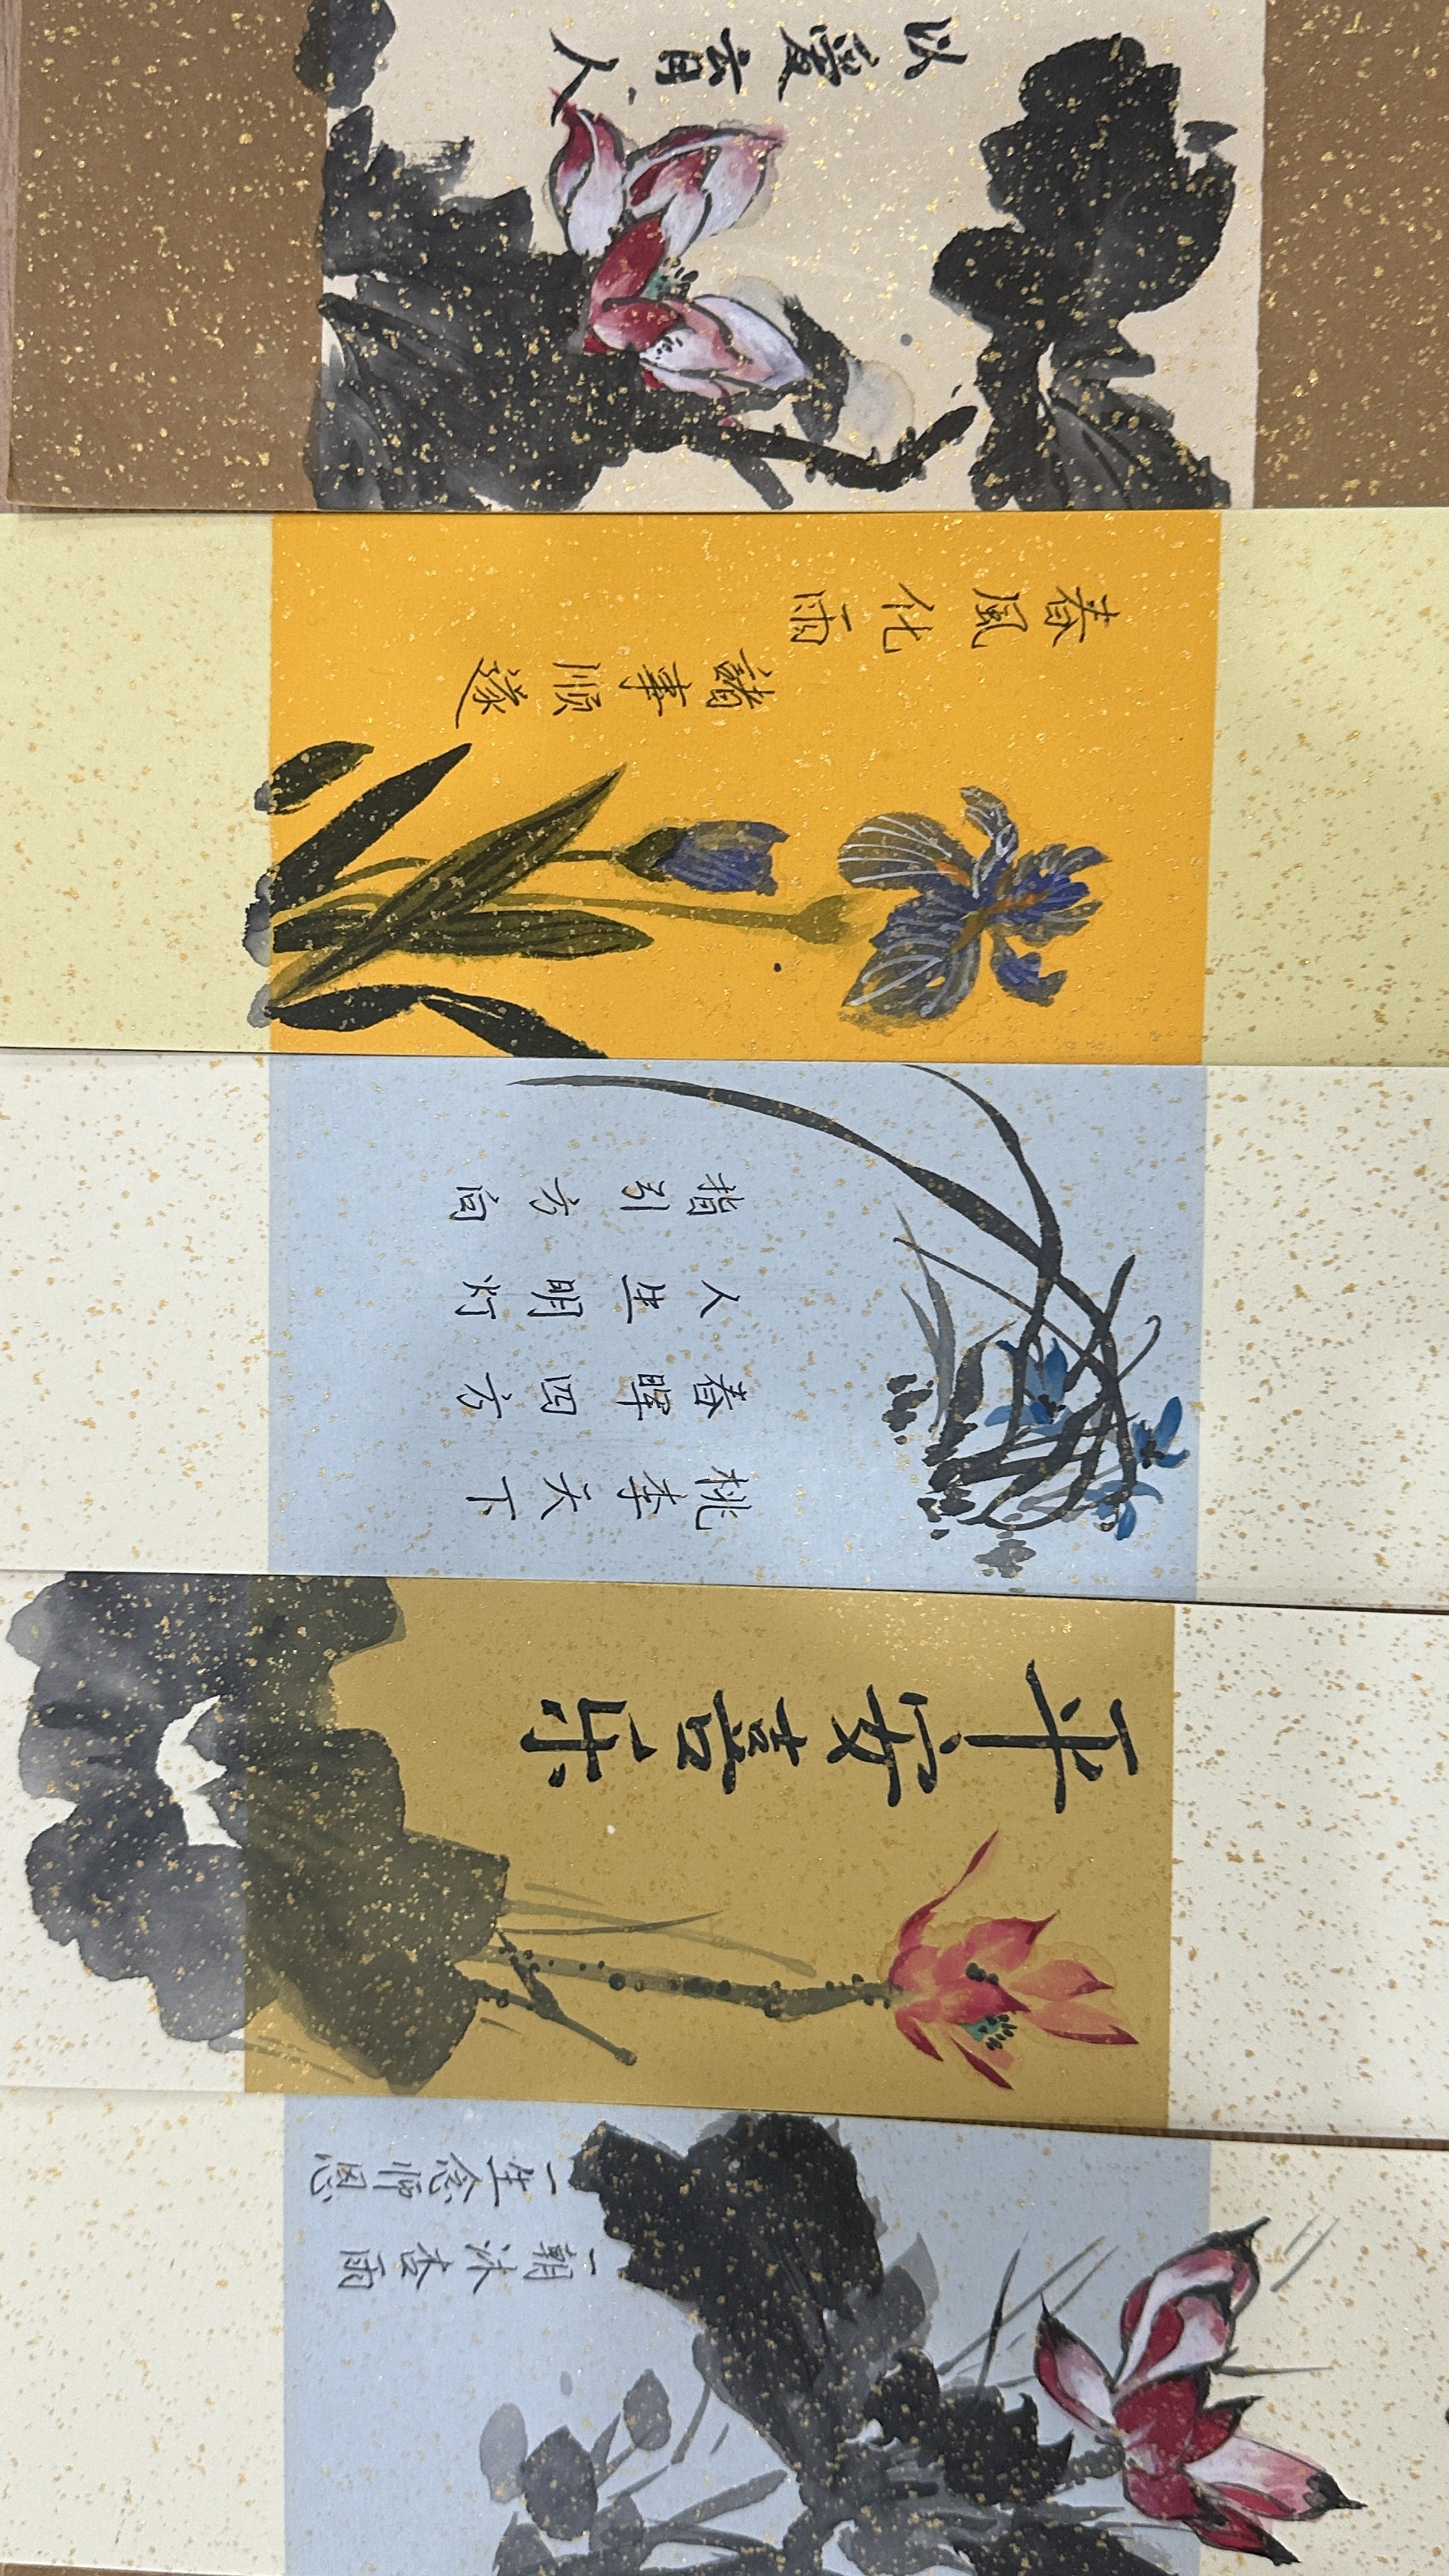 以愛育人
春風化雨
諸事顺遂
桃李天下
春晖四方
人生明灯
指引方向
平安喜乐
一朝沐杏雨
一生念师恩